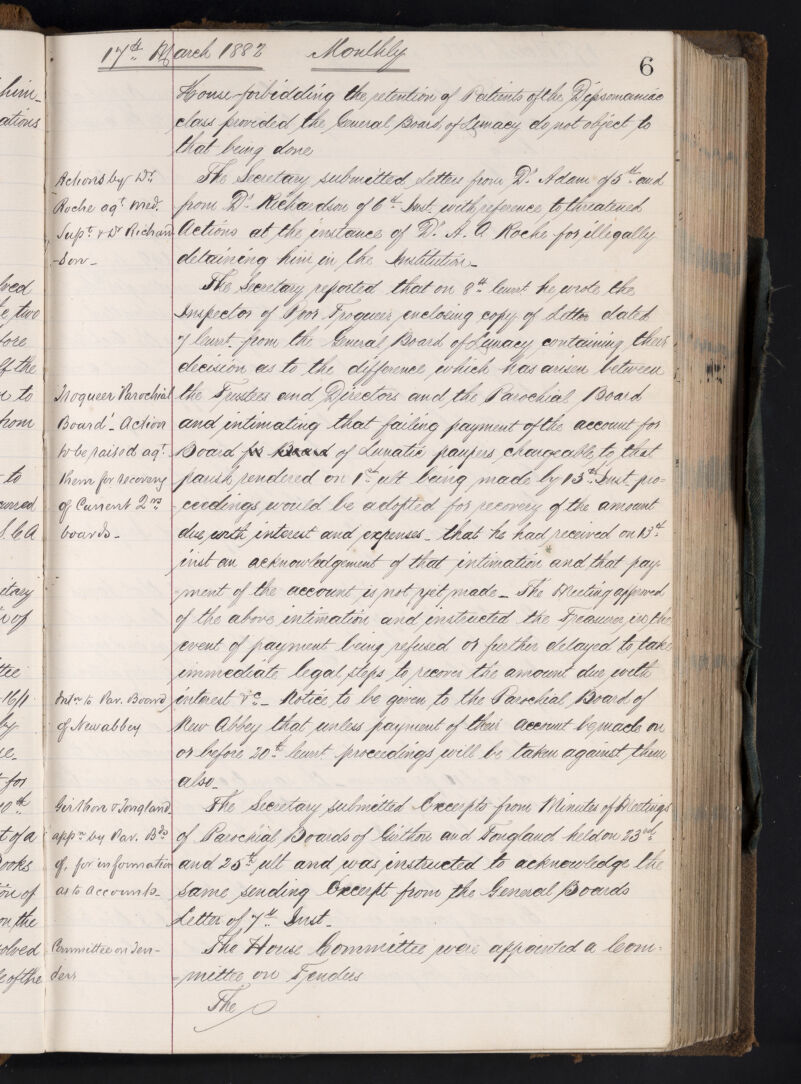 17th March 1882 Monthly
6
House forbidding the retention of Patients of the Dipsomaniac
class provided the General Board of Lunacy do not object to
that being done
Actions by Dr.
Roche agt. Med.
Supt. & Dr Richard-
-son -
The Secretary submitted Letters from Dr. Adam of 5th and
from Dr. Richardson of 6th Inst. with reference to threatened
Actions at the instance of Dr. A. O. Roche for illegally
detaining him in the Institution -
The Secretary reported that on 8th Curnt he wrote the
Inspector of Poor Troqueer enclosing copy of Letter dated
7 Curnt. from the General Board of Lunacy containing their
decision as to the difference which has arisen between
Troqueer Parochial
Board - Action
to be raised agt.
them for recovery
of Current Qrs
boards -
the Trustees and Directors and the Parochial Board
and intimating that failing payment of the account for
Board of Lunatic paupers chargeable to that
parish rendered on 1st ult being made by 13th Inst, pro-
-ceedings would be adopted for recovery of the amount
due, with interest and expenses - that he had received on 13th
inst an acknowledgement of that intimation and that pay-
-ment of the account is not yet made - The Meeting approved
of the above intimation and instructed the Treasurer, in the
event of payment being refused or further delayed to take
immediate legal steps to recover the amount due with
Intn. to Par. Board
of Newabbey
interest &c - Notice to be given to the Parochial Board of
New Abbey that unless payment of their account be made on
or before 20th Curnt proceedings will be taken against them
also -
Girthon & Tongland
appn by Par. Bds
of, for information
as to accounts -
The Secretary submitted Excerpts from Minutes of Meetings
of Parochial Boards of Girthon and Tongland held on 23rd
and 25th ult and was instructed to acknowledge the
same sending Excerpt from the General Boards
Letter of 7th Inst -
Committee on Ten-
ders
The House Committee were appointed a Com-
-mittee on Tenders
The
him -
ations
lved
he two
fore
of the
n to
from
- to
curred
S. C. A
itary
n of
ttee
-16/1
by
ce -
t for
10th
t of a
Books
ion of
on the
solved
le of the